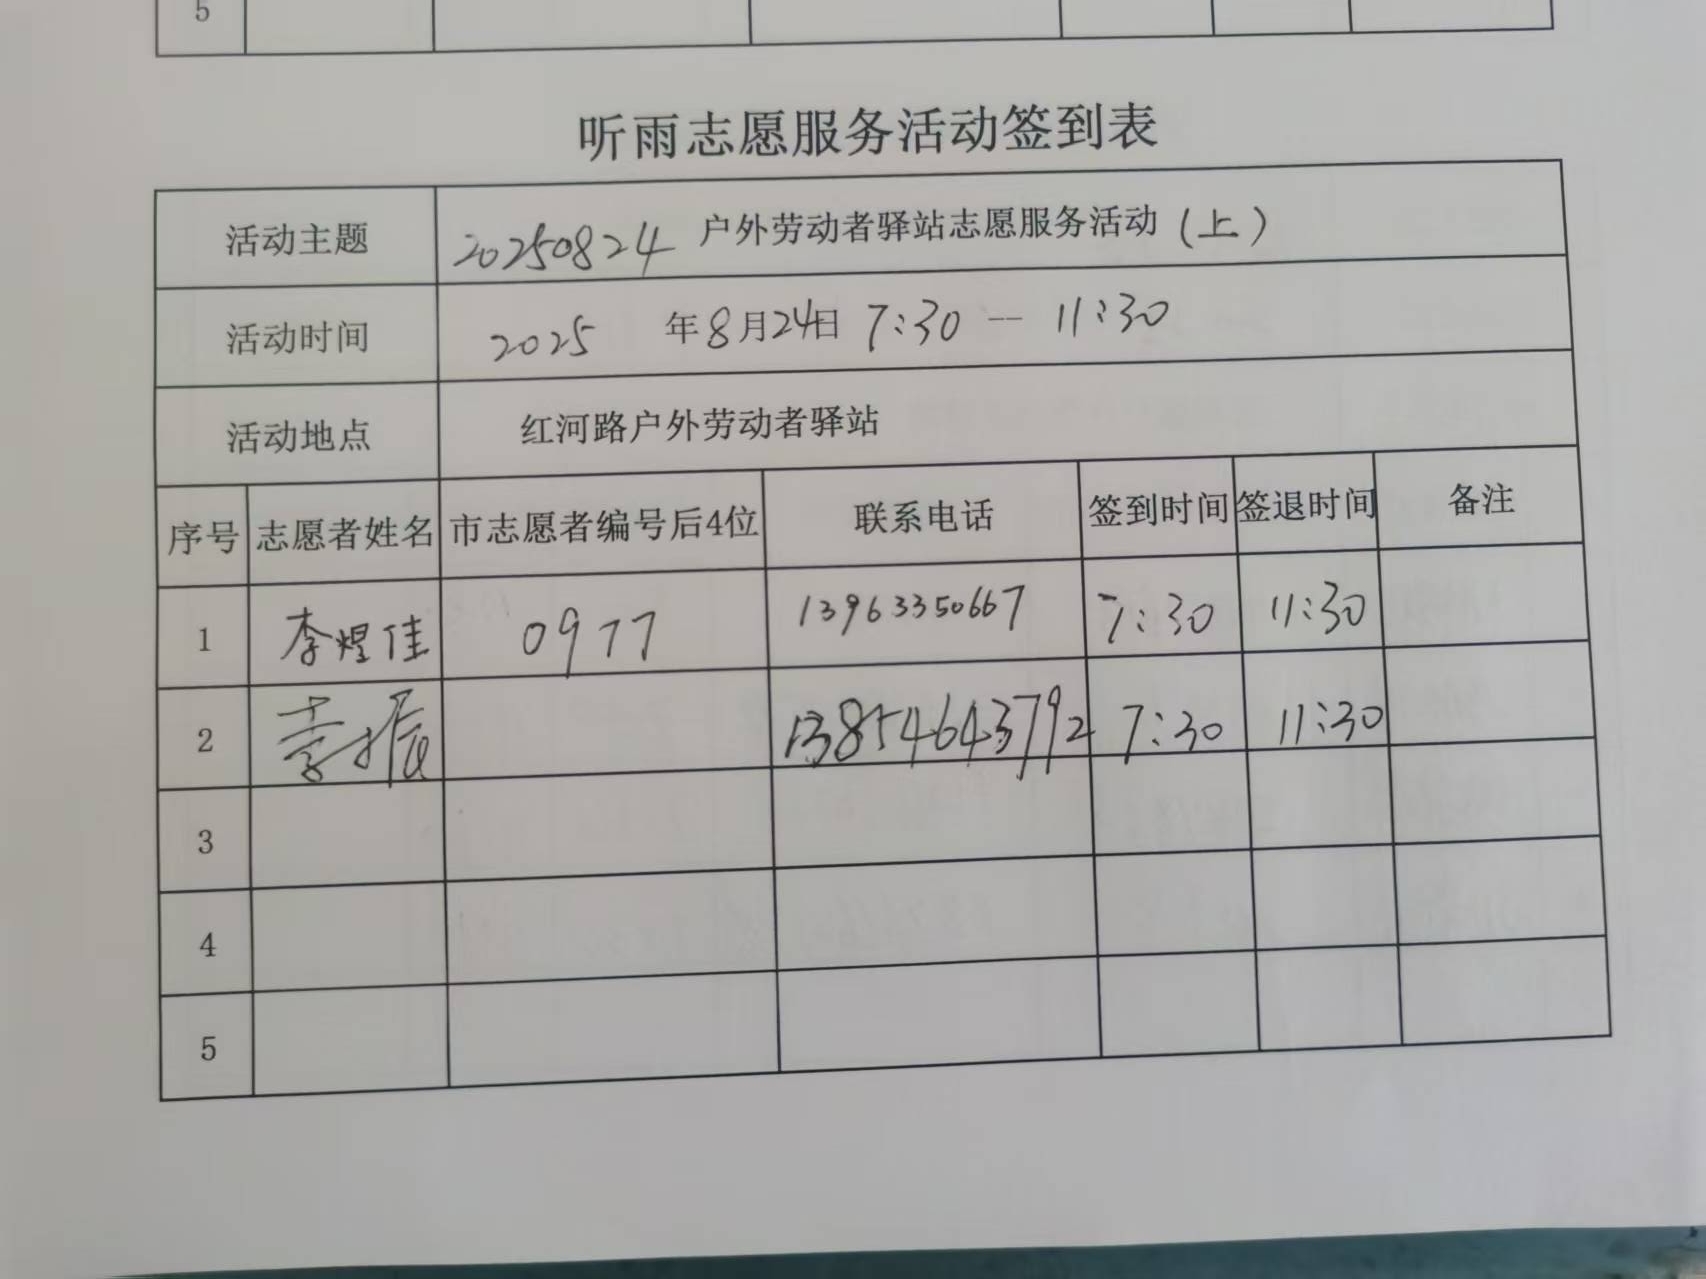 5
听雨志愿服务活动签到表
活动主题 20250824 户外劳动者驿站志愿服务活动（上）
活动时间 2025 年8月24日 7:30 — 11:30
活动地点 红河路户外劳动者驿站
序号 志愿者姓名 市志愿者编号后4位 联系电话 签到时间 签退时间 备注
1 李煜佳 0977 13963350667 7:30 11:30
2 13854643792 7:30 11:30
3
4
5